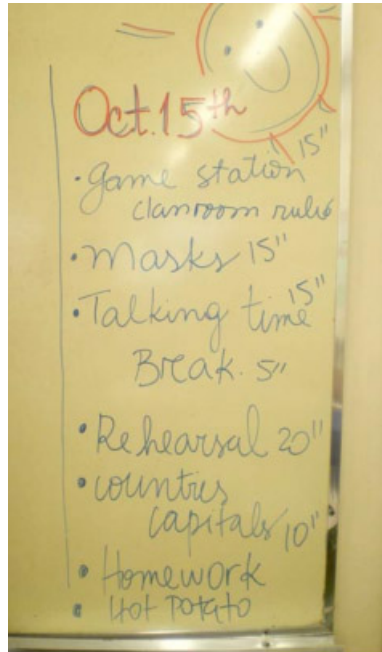 Oct. 15th
• Game station 15"
classroom rules
• Masks 15"
• Talking time 15"
Break. 5"
• Rehearsal 20"
• countries
capitals 10"
• Homework
• Hot Potato